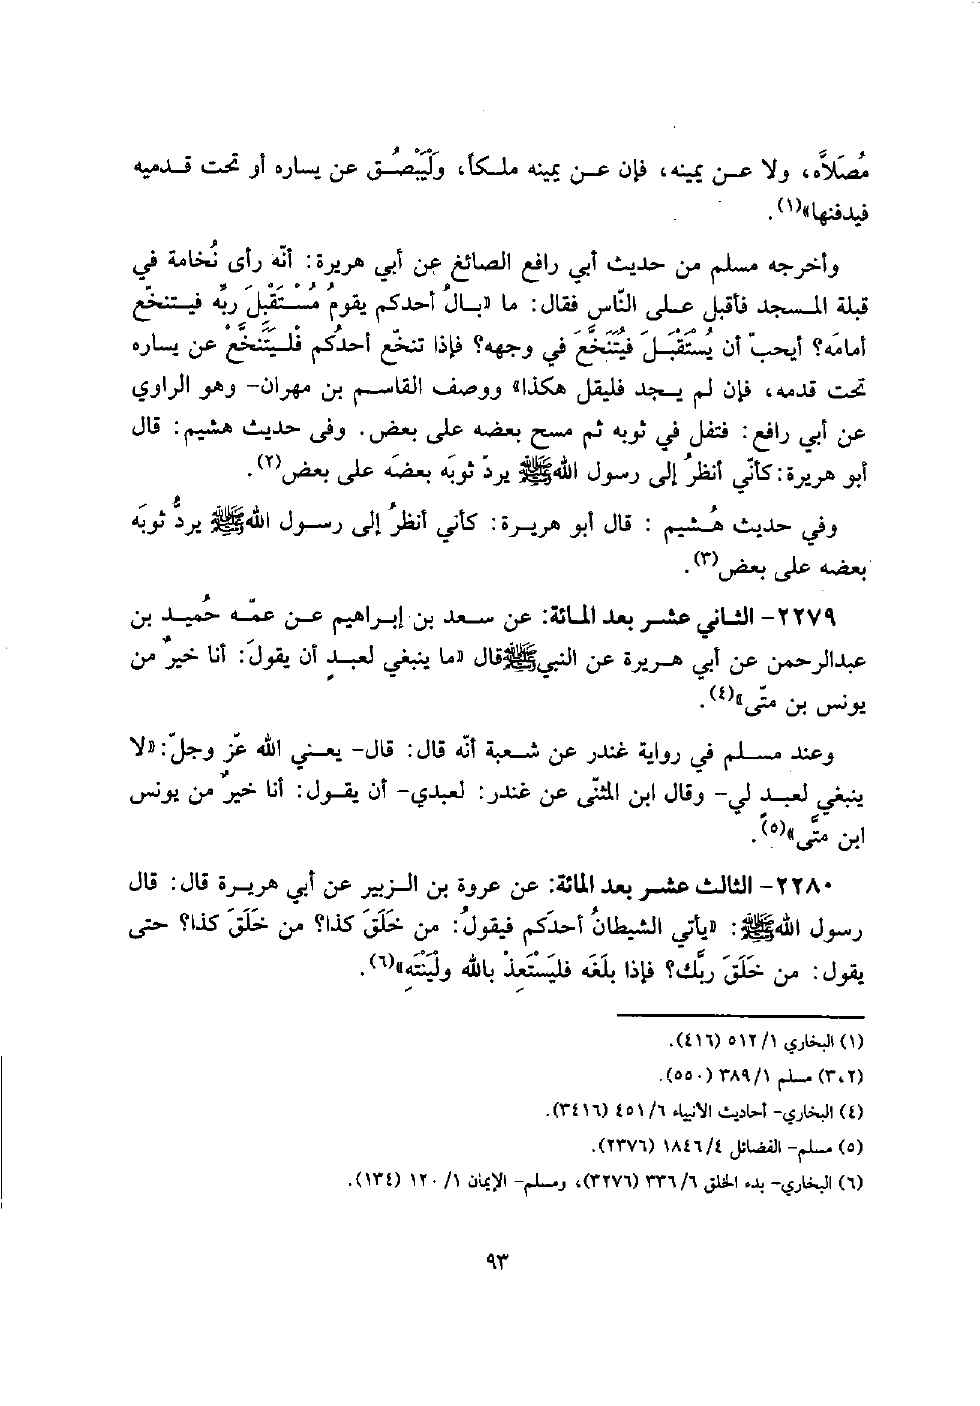 مُصَلاَّه، ولا عـن يمينه، فإن عـن يمينه ملـكاً، ولْيَبْصُـق عن يساره أو تحت قـدميه
فيدفنها»(١).
وأخرجه مسلم من حديث أبي رافع الصائغ عن أبي هريرة: أنّه رأى نُخامة في
قبلة المـسجد فأقبل عـلى النّاس فقال: ما «بـالُ أحدكم يقومُ مُسْتَقْبِلَ ربِّه فيـتنخّع
أمامَه؟ أيحبّ أن يُسْتَقْبَـلَ فيُتَنَخَّعَ في وجهه؟ فإذا تنخّع أحدُكم فلْـيَتَنَخَّعْ عن يساره
تحت قدمه، فإن لم يـجد فليقل هكذا» ووصف القاسـم بن مهران- وهو الراوي
عن أبي رافع: فتفل في ثوبه ثم مسح بعضه على بعض. وفى حديث هشيم: قال
أبو هريرة: كأنّي أنظرُ إلى رسول اللهﷺ يردّ ثوبَه بعضَه على بعض(٢).
وفي حديث هُـشيم : قال أبو هريـرة: كأني أنظرُ إلى رسـول اللهﷺ يردُّ ثوبَه
بعضه على بعض(٣).
٢٢٧٩- الثـاني عشـر بعد المائة: عن سـعد بن إبـراهيم عـن عمّـه حُميـد بن
عبدالرحمن عن أبي هـريرة عن النبيﷺ قال «ما ينبغي لعبـدٍ أن يقولَ: أنا خيرٌ من
يونس بن متّى»(٤).
وعند مسـلم في رواية غندر عن شـعبة أنّه قال: قال- يعـني الله عزّ وجلّ: «لا
ينبغي لعبـدٍ لي- وقال ابن المثنّى عن غندر: لعبدي- أن يقـول: أنا خيرٌ من يونس
ابن متَّى»(٥).
٢٢٨٠- الثالث عشـر بعد المائة: عن عروة بن الـزبير عن أبي هريـرة قال: قال
رسول اللهﷺ: «يأتي الشيطانُ أحدَكم فيقولُ: من خَلَقَ كذا؟ من خَلَقَ كذا؟ حتى
يقول: من خَلَقَ ربَّك؟ فإذا بلَغَه فليَسْتَعِذْ بالله ولْيَنْتَهِ»(٦).
(١) البخاري ١/ ٥١٢ (٤١٦).
(٣،٢) مسلم ١/ ٣٨٩ (٥٥٠).
(٤) البخاري- أحاديث الأنبياء ٦/ ٤٥١ (٣٤١٦).
(٥) مسلم- الفضائل ٤/ ١٨٤٦ (٢٣٧٦).
(٦) البخاري- بدء الخلق ٦/ ٣٣٦ (٣٢٧٦)، ومسلم- الإيمان ١/ ١٢٠ (١٣٤).
٩٣